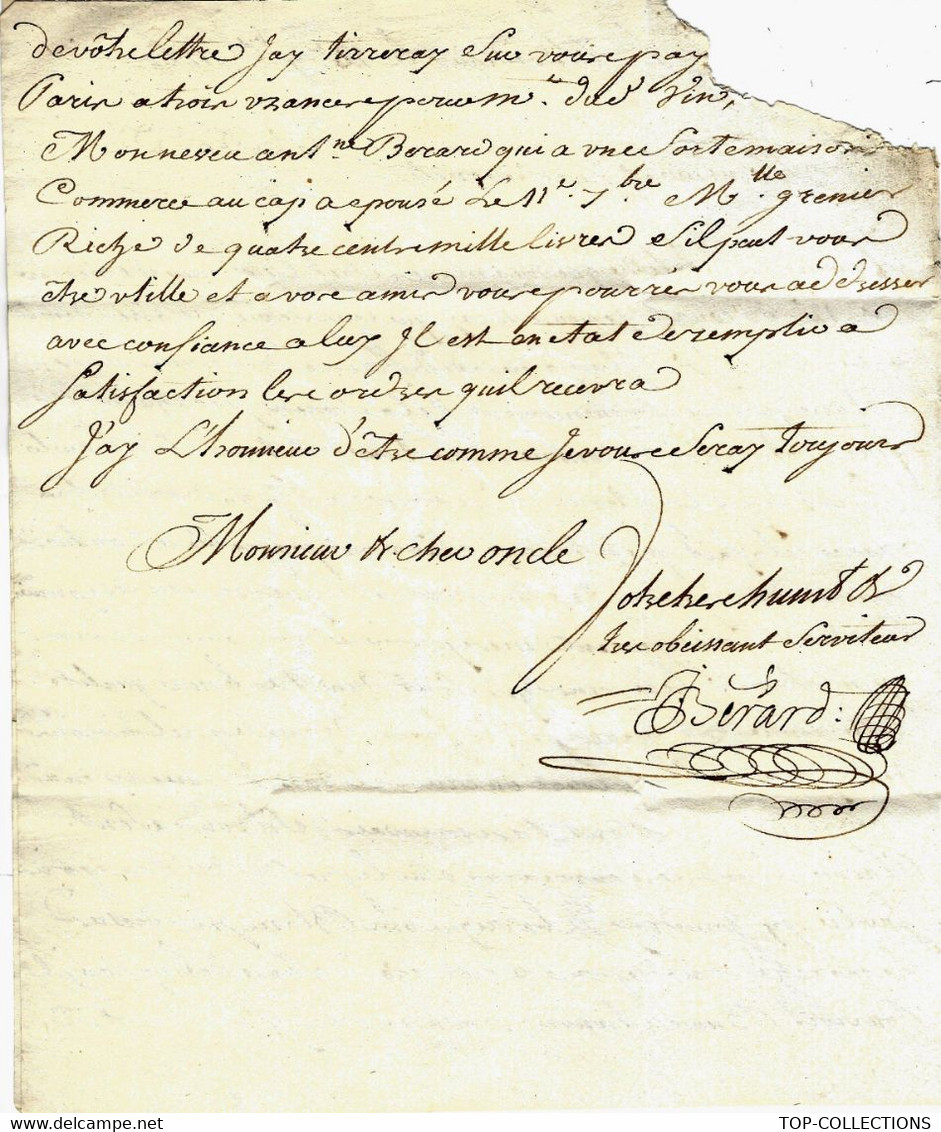 de vôtre lettre Jay tirreray sur vous pay
Paris a trois usances pour m.
Mon neveu ant.ne Berard qui a une forte maison
Commerce au cap a epousé Le 11e. 7.bre M.lle grenier
Riche de quatre cents mille livres s'il peut vous
être utille et a vos amis vous pourrés vous addresser
avec confiance a luy Jl est en etat de remplir a
satisfaction les ordres quil recevra
J'ay L'honneur d'être comme Je vous seray toujours
Monsieur & cher oncle
Votre tres humb &
tres obeissant serviteur
Bérard
TOP-COLLECTIONS